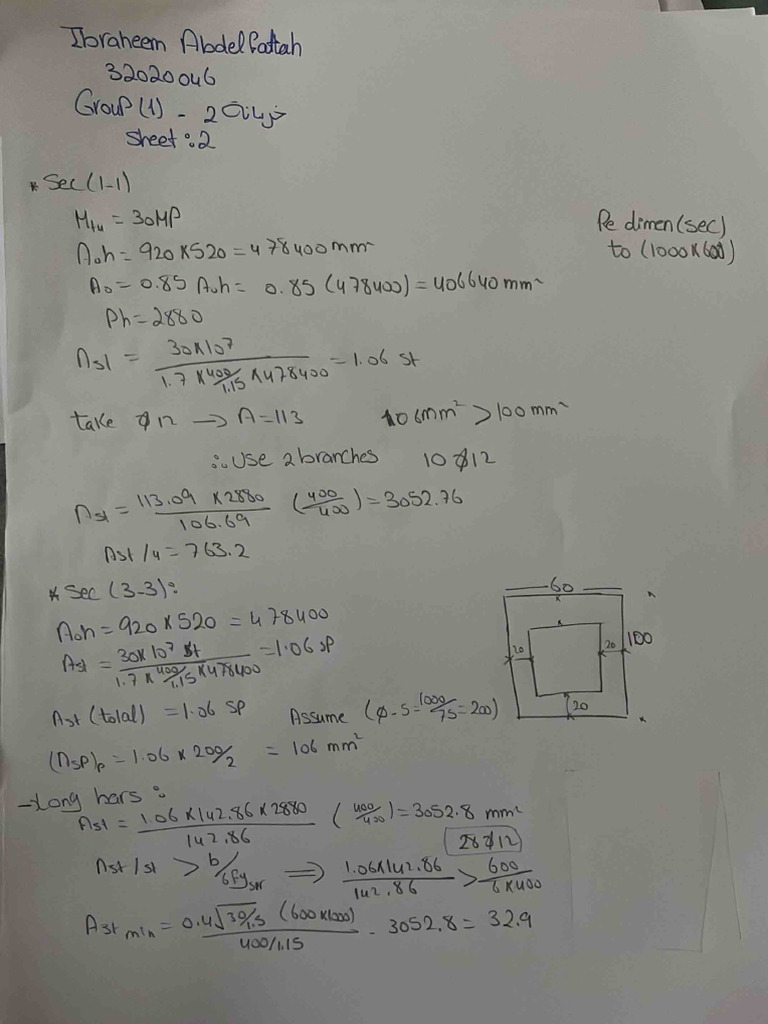 Ibraheem Abdelfattah
32020046
Group (1) - خرسانة 2
Sheet : 2
* Sec (1-1)
Mtu = 30MP
Re dimen (sec)
to (1000 X 600)
Aoh = 920 X 520 = 478400 mm²
Ao = 0.85 Aoh = 0.85 (478400) = 406640 mm²
Ph = 2880
Ast = 30X10⁷ / 1.7 X 400/1.15 X 478400 = 1.06 st
take ϕ 12 → A = 113 106mm² > 100 mm²
∴ Use 2 branches 10 ϕ 12
Ast = 113.09 X 2880 / 106.69 (400/400) = 3052.76
Ast / 4 = 763.2
* Sec (3-3) :
Aoh = 920 X 520 = 478400
Ast = 30 X 10⁷ St / 1.7 X 400/1.15 X 478400 = 1.06 SP
60
100
20
20
20
Ast (total) = 1.06 SP Assume (ϕ - S = 1000/75 = 200)
(Asp)p = 1.06 X 200/2 = 106 mm²
- Long bars :
Ast = 1.06 X 142.86 X 2880 / 142.86 (400/400) = 3052.8 mm²
28 ϕ 12
Ast / st > b/6fy ⇒ 1.06X142.86 / 142.86 > 600 / 6 X 400
Ast min = 0.4 √30/1.5 (600 X 1000) / 400/1.15 - 3052.8 = 32.9